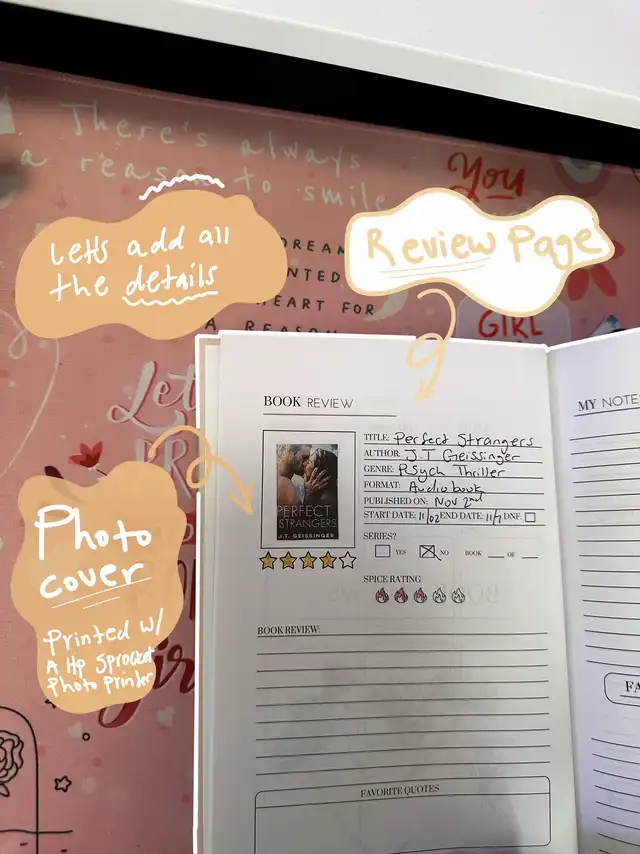 There's always
a reason to smile
You
Let's add all
the details
Review Page
DREAM
HEART FOR
A REASON
GIRL
BOOK REVIEW
MY NOTE
TITLE: Perfect Strangers
AUTHOR: J.T Geissinger
GENRE: Psych Thriller
FORMAT: Audiobook
PUBLISHED ON: Nov 2nd
START DATE: 11/02 END DATE: 11/7 DNF:
PERFECT
STRANGERS
J.T. GEISSINGER
SERIES?
YES NO BOOK OF
SPICE RATING
Photo
cover
Printed W/
A Hp Sprocket
Photo Printer
BOOK REVIEW:
FA
FAVORITE QUOTES